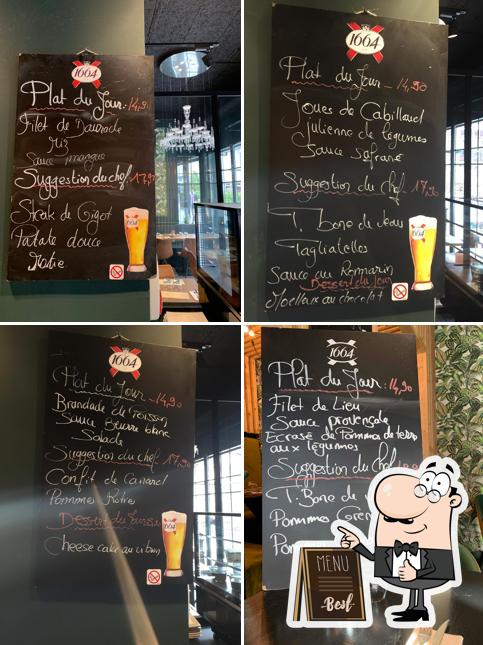 1664
Plat du Jour. 14,90
Filet de Daurade
Riz
Sauce mangue
Suggestion du chef 17,90
Steak de Gigot
Patate douce
Rotie
1664
1664
Plat du Jour - 14,90
Joues de Cabillaud
julienne de légumes
Sauce Safrané
Suggestion du chef 17,90
T bone de veau
Tagliatelles
Sauce au Romarin
Dessert du Jour
Moelleux au chocolat
1664
1664
Plat du Jour - 14,90
Brandade de Poisson
Sauce Beurre blanc
Salade
Suggestion du chef 17,90
Confit de Canard
Pommes Roties
Dessert du
Cheese cake au citron
1664
1664
Plat du Jour : 14,90
Filet de Lieu
Sauce provençale
Ecrasé de Pommes de terre
aux légumes
Suggestion du Chef
T. Bone de
Pommes
MENU
Best